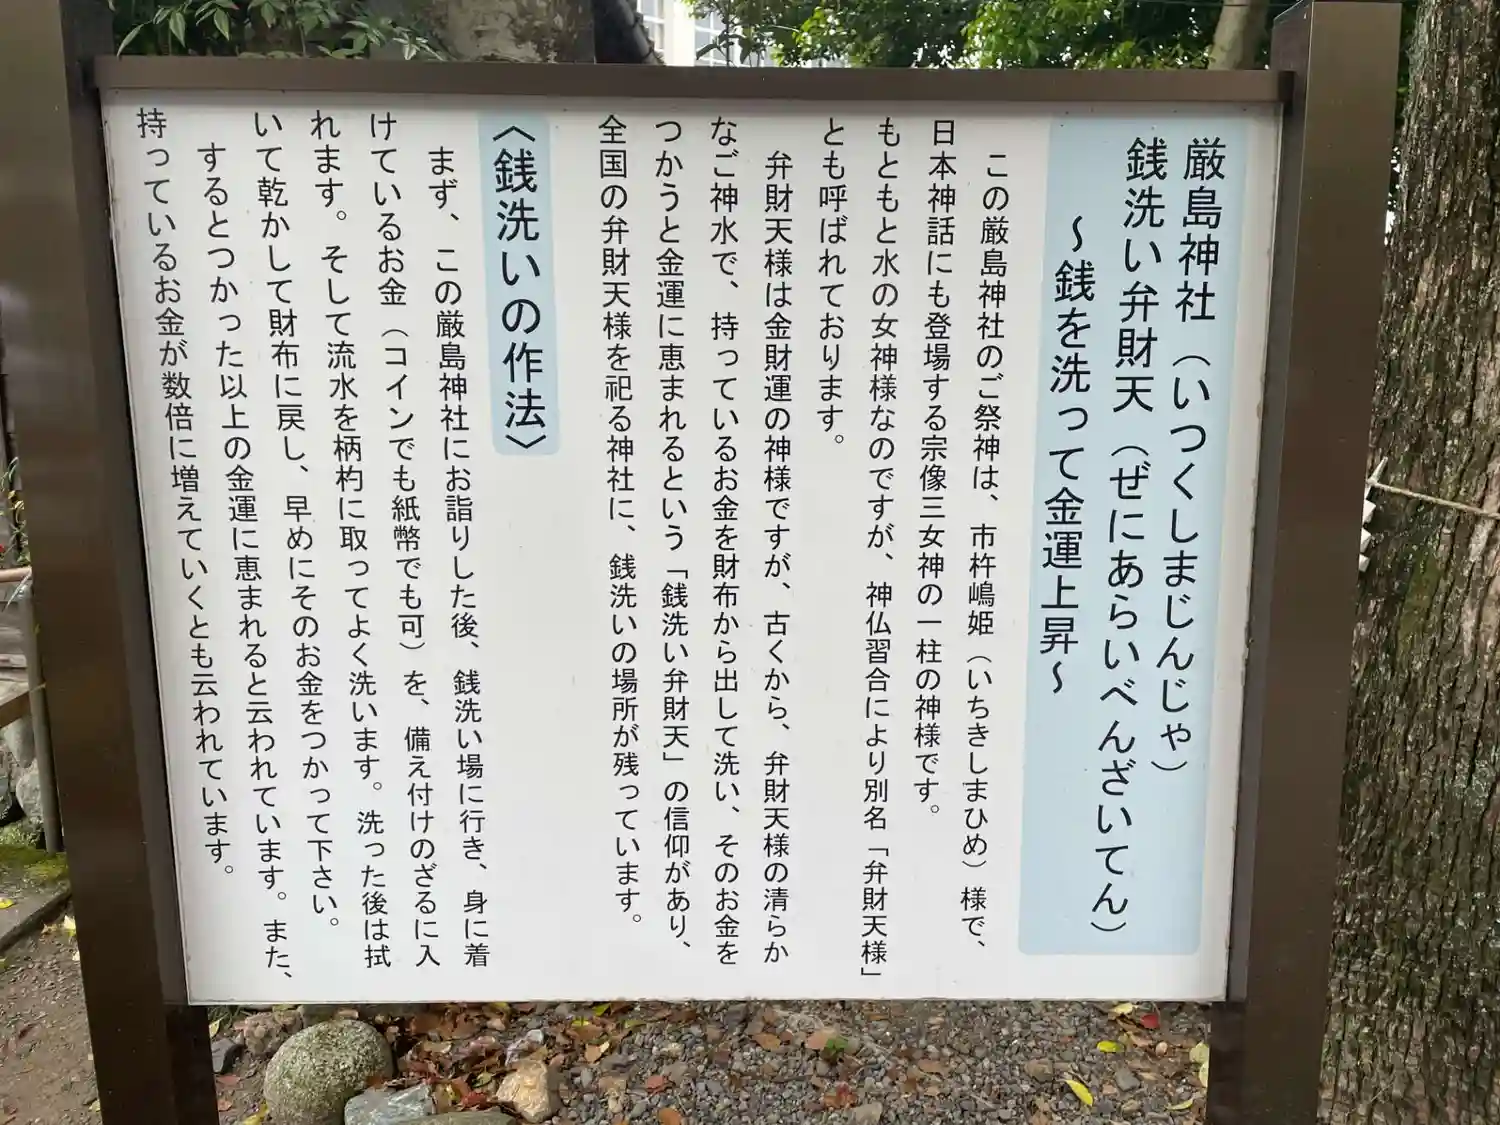 厳島神社（いつくしまじんじゃ）
銭洗い弁財天（ぜにあらいべんざいてん）
～銭を洗って金運上昇～
この厳島神社のご祭神は、市杵嶋姫（いちきしまひめ）様で、
日本神話にも登場する宗像三女神の一柱の神様です。
もともと水の女神様なのですが、神仏習合により別名「弁財天様」
とも呼ばれております。
弁財天様は金財運の神様ですが、古くから、弁財天様の清らか
なご神水で、持っているお金を財布から出して洗い、そのお金を
つかうと金運に恵まれるという「銭洗い弁財天」の信仰があり、
全国の弁財天様を祀る神社に、銭洗いの場所が残っています。
〈銭洗いの作法〉
まず、この厳島神社にお詣りした後、銭洗い場に行き、身に着
けているお金（コインでも紙幣でも可）を、備え付けのざるに入
れます。そして流水を柄杓に取ってよく洗います。洗った後は拭
いて乾かして財布に戻し、早めにそのお金をつかって下さい。
するとつかった以上の金運に恵まれると云われています。また、
持っているお金が数倍に増えていくとも云われています。